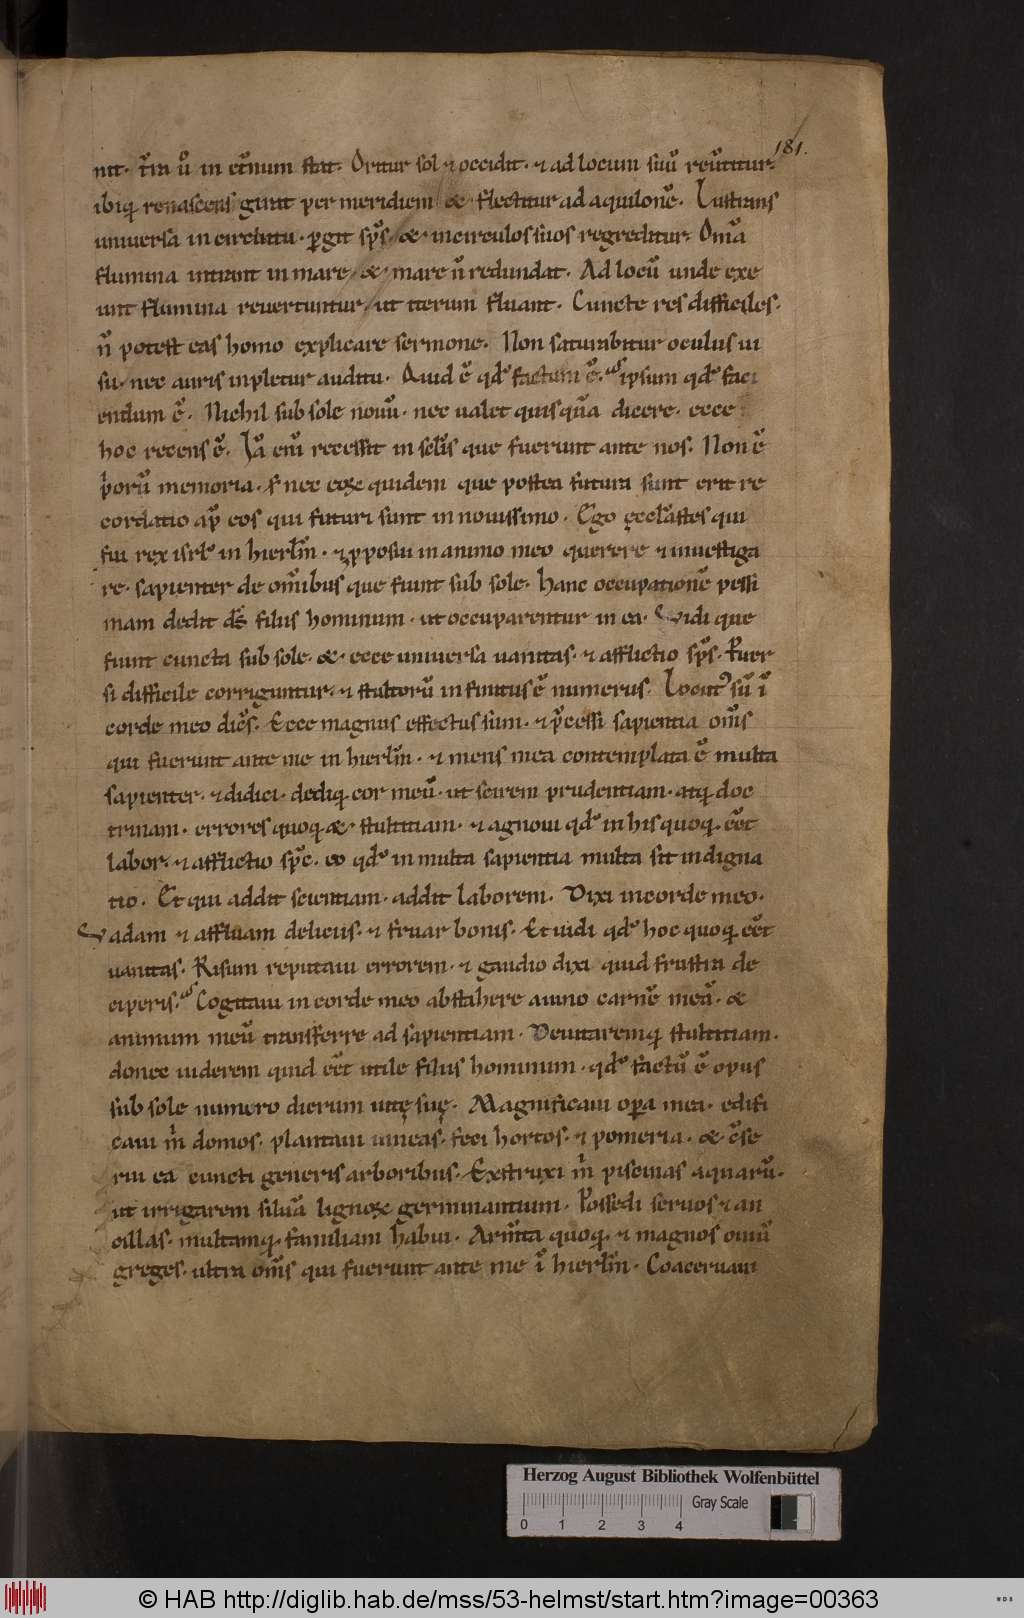 181.
nit. t̃ra ũ in et̃num stat. Oritur sol ⁊ occidit. ⁊ ad locum suũ reũtitur.
ibiq; renascens girat per meridiem & flectitur ad aquilonẽ. Lustrans
uniuersa in circuitu. ꝑgit sp̃s. & in circulos suos regreditur. Om̃a
flumina intrant in mare. & mare ñ redundat. Ad locũ unde exe
unt flumina reuertuntur. ut iterum fluant. Cuncte res difficiles.
ñ potest eas homo explicare sermone. Non saturabitur oculus ui
su. nec auris inpletur auditu. Quid ẽ qd̃ factum ẽ. ipsum qd̃ faci
endum ẽ. Nichil sub sole nouũ. nec ualet quisquã dicere. ecce
hoc recens ẽ. Iã eni᷑ recessit in scl̃is que fuerunt ante nos. Non ẽ
p̃orũ memoria. s; nec eoꝝ quidem que postea futura sunt erit re
cordatio ap̃ eos qui futuri sunt in nouissimo. Ego ęccl̃astes qui
fui rex isrl̃ in hierl̃m. ⁊ ꝓposui in animo meo querere ⁊ inuestiga
re. sapienter de om̃ibus que fiunt sub sole. Hanc occupationẽ pessi
mam dedit ds̃ filiis hominum. ut occuparentur in ea. Vidi que
fiunt cuncta sub sole. & ecce uniuersa uanitas. ⁊ afflictio sp̃s. Ꝑuer
si difficile corriguntur. ⁊ stultorũ infinitus ẽ numerus. Locut᷒ sũ ĩ
corde meo dic̃s. Ecce magnus effectus sum. ⁊ p̃cessi sapientia om̃s
qui fuerunt ante me in hierl̃m. ⁊ mens mea contemplata ẽ multa
sapienter. ⁊ didici. dediq; cor meũ. ut scirem prudentiam. atq; doc
trinam. errores quoq; & stultitiam. ⁊ agnoui qd̃ in his quoq; eẽt
labor. ⁊ afflictio sp̃c. eo qd̃ in multa sapientia multa sit indigna
tio. Et qui addit scientiam. addit laborem. Dixi in corde meo.
Vadam ⁊ affluam deliciis. ⁊ fruar bonis. Et uidi qd̃ hoc quoq; eẽt
uanitas. Risum reputaui errorem. ⁊ gaudio dixi quid frustra de
ciperis. Cogitaui in corde meo abstrahere a uino carnẽ meã. &
animum meũ transferre ad sapientiam. Deuitaremq; stultitiam.
donec uiderem quid eẽt utile filiis hominum. qd̃ factũ ẽ opus
sub sole numero dierum uitę suę. Magnificaui oꝑa mea. edifi
caui m̃ domos. plantaui uineas. feci hortos. ⁊ pomeria. & c̃se
rui ea cuncti generis arboribus. Exstruxi m̃ piscinas aquarũ.
ut irrigarem siluã lignoꝝ germinantium. Possedi seruos ⁊ an
cillas. multamq; familiam habui. Arm̃ta quoq;. ⁊ magnos ouiũ
greges. ultra om̃s qui fuerunt ante me ĩ hierl̃m. Coaceruaui
Herzog August Bibliothek Wolfenbüttel
Gray Scale
0 1 2 3 4
© HAB http://diglib.hab.de/mss/53-helmst/start.htm?image=00363